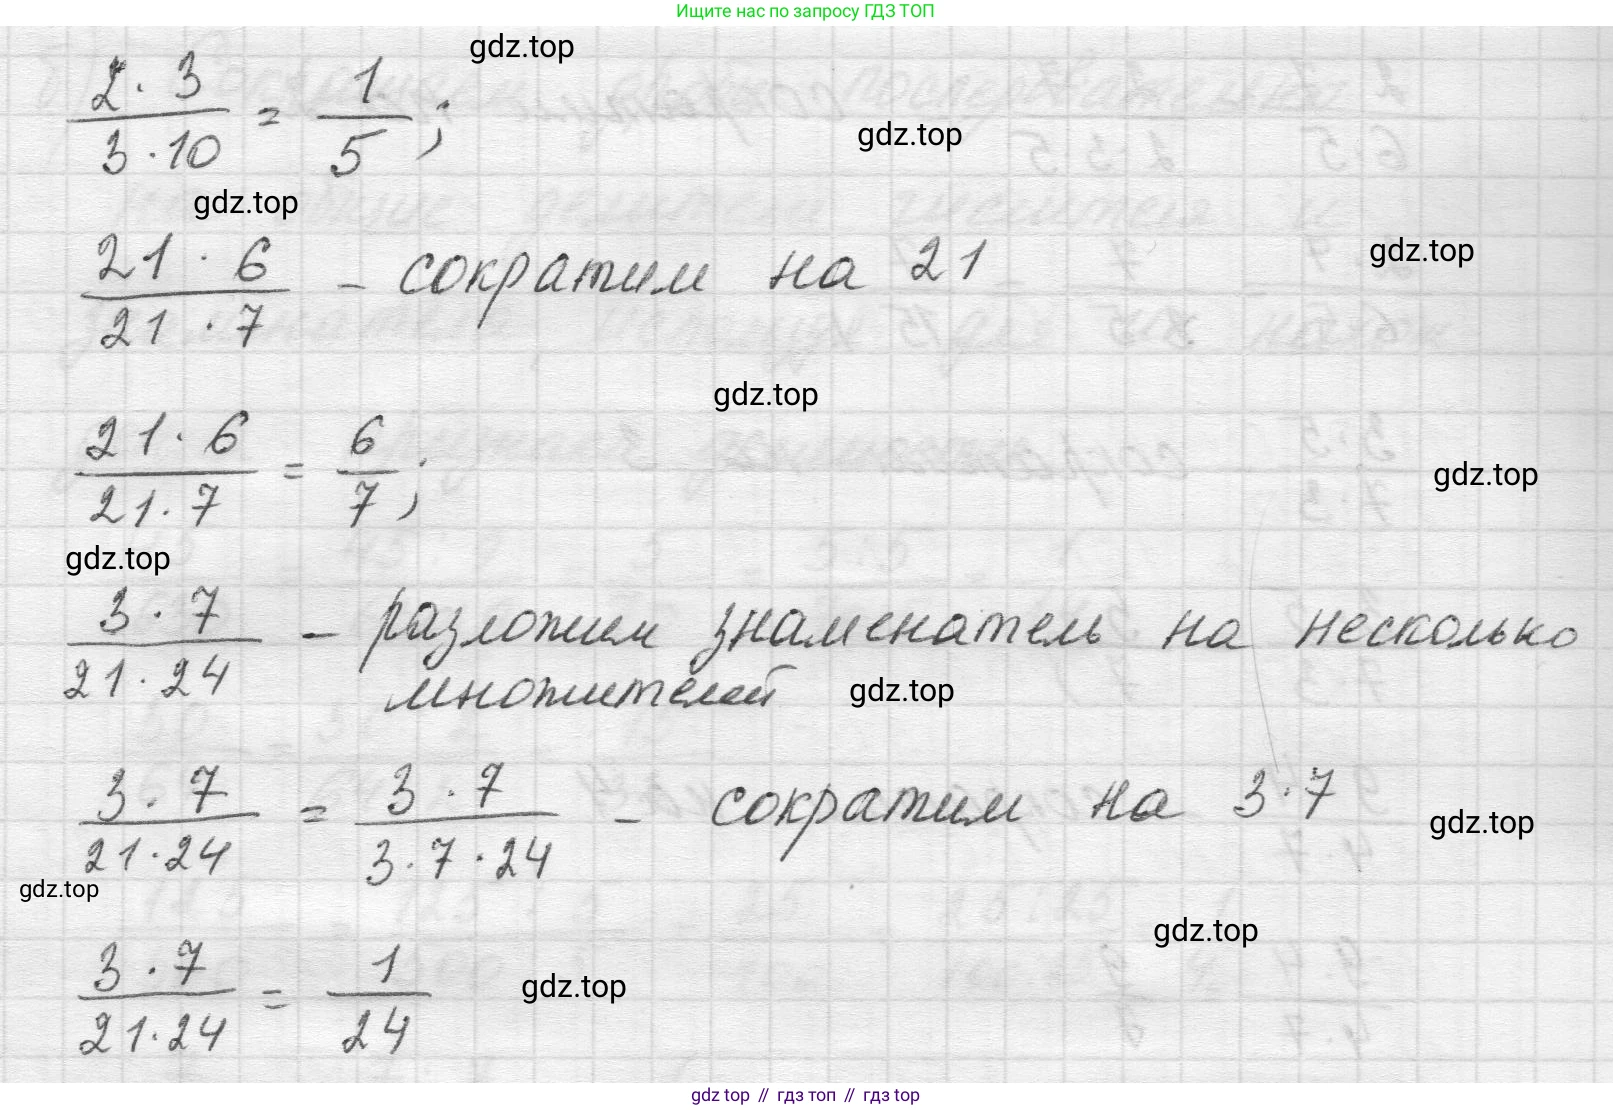 Ищите нас по запросу ГДЗ ТОП
gdz.top
2 · 3 / 3 · 10 = 1 / 5 ;
gdz.top
gdz.top
21 · 6 / 21 · 7 - сократим на 21
gdz.top
gdz.top
21 · 6 / 21 · 7 = 6 / 7 ;
gdz.top
gdz.top
3 · 7 / 21 · 24 - разложим знаменатель на несколько
множителей
gdz.top
3 · 7 / 21 · 24 = 3 · 7 / 3 · 7 · 24 - сократим на 3 · 7
gdz.top
gdz.top
gdz.top
3 · 7 / 21 · 24 = 1 / 24
gdz.top
gdz top // гдз топ // гдз top